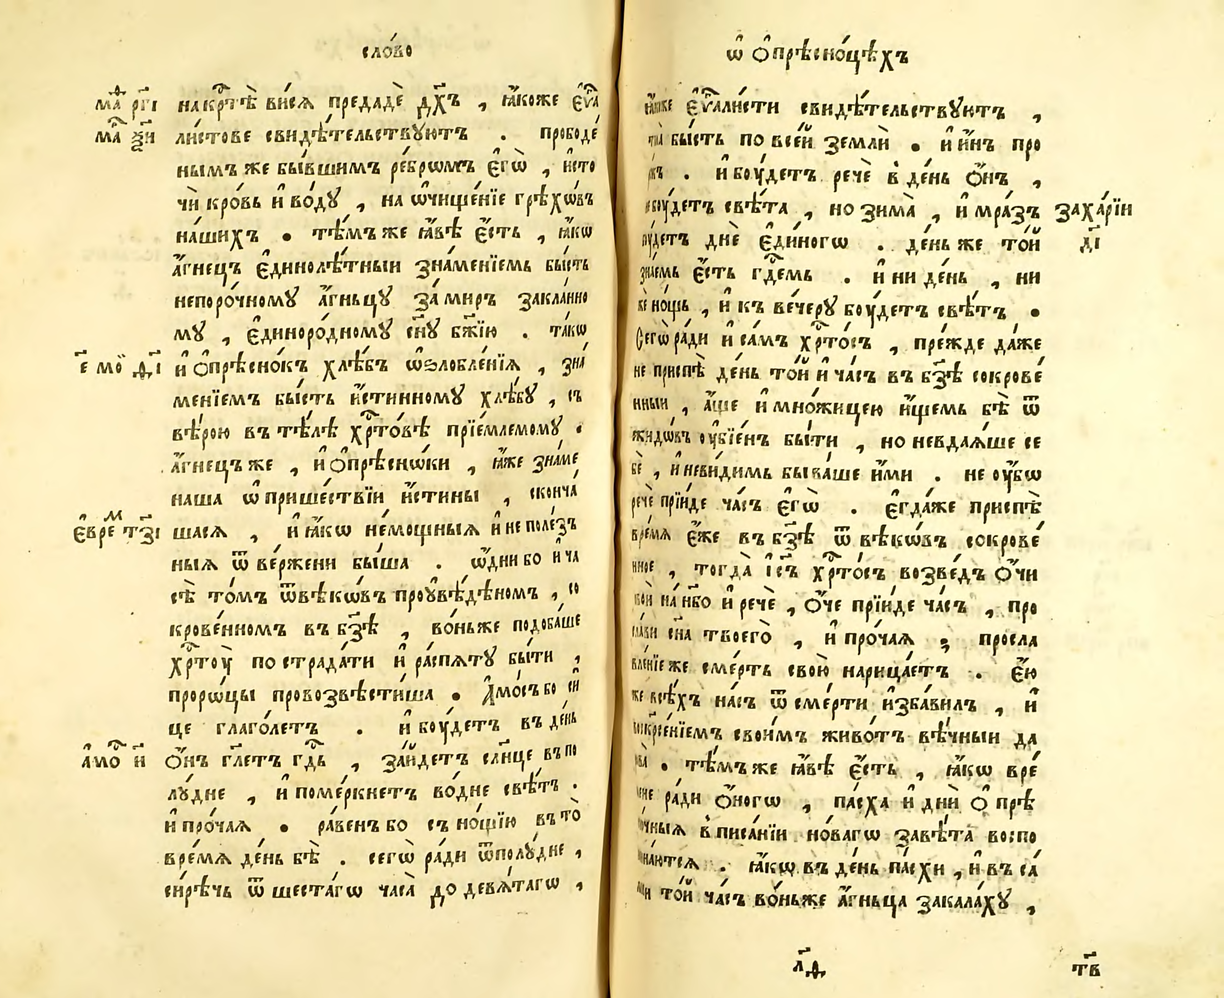 сло́во
ма́ѳ рг҃і на кр҇тѣ̀ вися̀ предадѐ дх҃ъ , ꙗ҆́коже є҆ѵⷢ҇а
ма́ѳ ѯ҃и ли́стове свидѣ́тельствꙋютъ . прободе́
нымъ же бы́вшимъ ре́брѡмъ є҆гѡ̀ , и҆сто
чѝ кро́вь и҆ во́дꙋ , на ѡ҆чище́нїе грѣхѡ́въ
на́шихъ . тѣ́мъ же ꙗ҆́вѣ є҆́сть , ꙗ҆́кѡ
а҆́гнецъ є҆динолѣ́тныи зна́менїемъ бы́сть
непоро́чномꙋ а҆́гньцꙋ за́ миръ закла́нно
мꙋ , є҆диноро́дномꙋ сн҃ꙋ бж҃їю . та́кѡ
є҃ мо ѳ д҃і и҆ ѻ҆прѣсно́къ хлѣ́бъ ѡ҆ѕлобле́нїя , зна́
менїемъ бы́сть и҆́стинномꙋ хлѣ́бꙋ , съ
вѣ́рою въ тѣ́лѣ хр҇то́вѣ прїе́млемомꙋ .
а҆́гнецъ же , и҆ ѻ҆прѣсню́ки , ꙗ҆́же зна́ме
наша ѡ҆ прише́ствїи и҆́стины , сконча́
є҆вре́ тз҃і шася , и҆ ꙗ҆́кѡ не́мощныя и҆ не поле́з
ныя ѿ ве́ржени бы́ша . ѡ҆́дни бо и҆ ча
сѣ̀ то́мъ ѿвѣ́кѡвъ проꙋ́вѣ́дѣномъ , со
крове́нномъ въ бз҃ѣ , во́ньже подоба́ше
хр҇тоу̀ по страда́ти и҆ распя́тꙋ бы́ти ,
проро́цы провозвѣсти́ша . А҆мо́съ бо си́
це глаго́летъ . и҆ бо́ꙋдетъ въ де́нь
а҆мо́ и҃ ѻ҆́нъ гл҃етъ гд҇ь , за́йдетъ сл҃нце въ по
лꙋ́дне , и҆ поме́ркнетъ во́дне свѣ́тъ .
и҆ про́чая . ра́венъ бо съ но́щїю въ то̀
вре́мя де́нь бѣ̀ . сегѡ̀ ра́ди ѿполꙋ́дне ,
си́рѣчь ѿ шеста́гѡ часа̀ до девя́тагѡ ,
ѡ҆ ѻ҆прѣсно́цѣхъ
ꙗ҆́коже є҆ѵⷢ҇али́сти свидѣ́тельствꙋютъ ,
бы́сть по все́й землѝ . и҆ и҆́нъ про
. и҆ бо́ꙋдетъ речѐ в̾ де́нь ѻ҆́нъ ,
свѣ́та , но зима̀ , и҆ мра́зъ заха́рїи
днѐ є҆ди́ногѡ . де́нь же то́й д҃і
є҆́сть гд҇емъ . и҆ ни де́нь , ни
но́щь , и҆ къ ве́черꙋ бо́ꙋдет свѣ́тъ .
Сегѡ̀ ра́ди и҆ са́мъ хр҇то́съ , пре́жде да́же
не приспѣ̀ де́нь то́й и҆ ча́съ въ бз҃ѣ сокрове́
нныи , а҆́ще и҆ мно́жицею и҆́щемь бѣ̀ ѿ
жидѡ́въ ᲂу҆бїе́нъ бы́ти , но невдая́ше се
бѐ , и҆ неви́димь быва́ше и҆́ми . не ᲂу҆́бѡ
речѐ прїи́де ча́съ є҆гѡ̀ . є҆гда́же приспѣ̀
вре́мя є҆́же въ бз҃ѣ ѿ вѣ́кѡвъ сокрове́
нное , тогда̀ і҆с҃ъ хр҇то́съ возве́дъ ѻ҆́чи
свои̑ на нб҃о и҆ речѐ , ѻ҆́че прїи́де ча́съ , про
сла́ви сн҃а твоего̀ , и҆ про́чая ; просла
вле́нїе же сме́рть свою̀ нарица́етъ . є҆́ю
же всѣ́хъ на́съ ѿ сме́рти и҆зба́вилъ , и҆
воскр҃се́нїемъ свои́мъ живо́тъ вѣ́чныи да
. тѣ́мъ же ꙗ҆́вѣ є҆́сть , ꙗ҆́кѡ вре́
ра́ди ѻ҆́ногѡ , па́сха и҆ дни̑ ѻ҆прѣ
сно́чныя в̾ писа́нїи но́вагѡ завѣ́та воспо
мина́ются . ꙗ҆́кѡ въ де́нь па́схи , и҆ въ са́
то́й ча́съ во́ньже а҆́гньца закала́хꙋ ,
л҃ѳ
тв҃